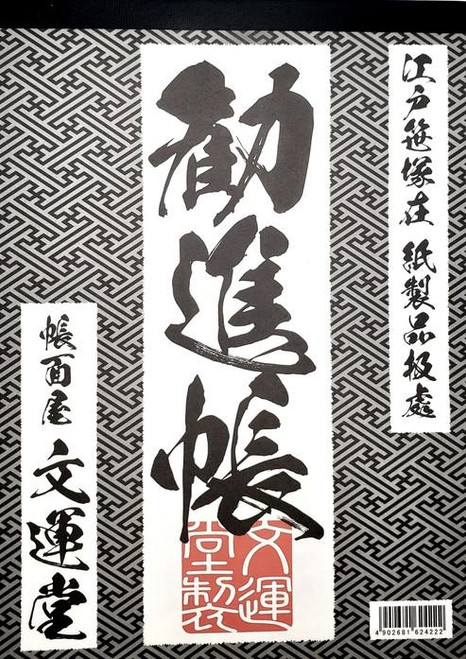 江戸笹塚在 紙製品扱處
勧進帳
文運
堂製
帳面屋 文運堂
4902681624222